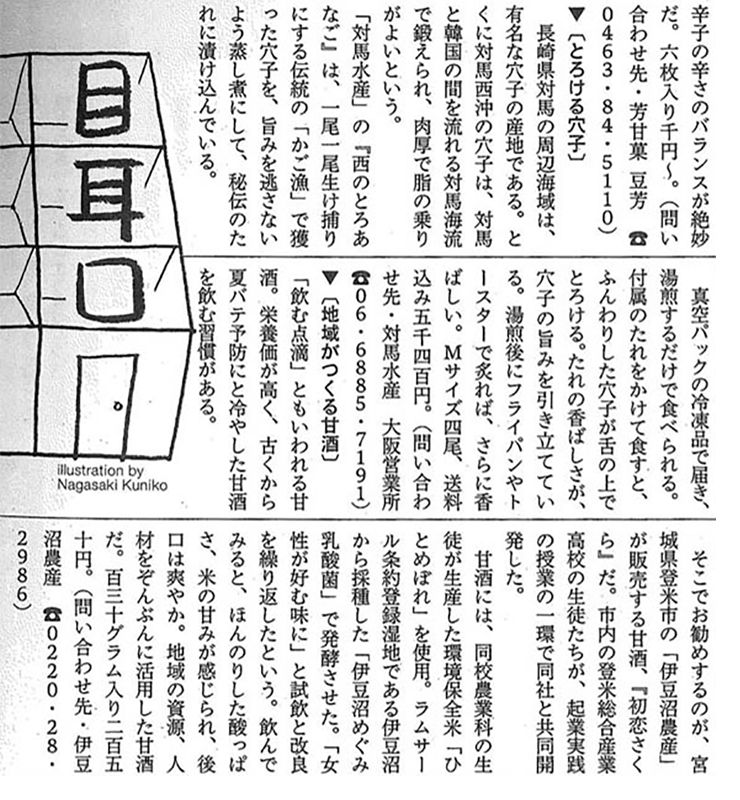 辛子の辛さのバランスが絶妙
だ。六枚入り千円～。（問い
合わせ先・芳甘菓 豆芳 ☎
0463・84・5110）
▼〔とろける穴子〕
長崎県対馬の周辺海域は、
有名な穴子の産地である。と
くに対馬西沖の穴子は、対馬
と韓国の間を流れる対馬海流
で鍛えられ、肉厚で脂の乗り
がよいという。
「対馬水産」の『西のとろあ
なご』は、一尾一尾生け捕り
にする伝統の「かご漁」で獲
った穴子を、旨みを逃さない
よう蒸し煮にして、秘伝のた
れに漬け込んでいる。
目耳口
真空パックの冷凍品で届き、
湯煎するだけで食べられる。
付属のたれをかけて食すと、
ふんわりした穴子が舌の上で
とろける。たれの香ばしさが、
穴子の旨みを引き立ててい
る。湯煎後にフライパンやト
ースターで炙れば、さらに香
ばしい。Mサイズ四尾、送料
込み五千四百円。（問い合わ
せ先・対馬水産 大阪営業所
☎06・6885・7191）
▼〔地域がつくる甘酒〕
「飲む点滴」ともいわれる甘
酒。栄養価が高く、古くから
夏バテ予防にと冷やした甘酒
を飲む習慣がある。
illustration by
Nagasaki Kuniko
そこでお勧めするのが、宮
城県登米市の「伊豆沼農産」
が販売する甘酒、『初恋さく
ら』だ。市内の登米総合産業
高校の生徒たちが、起業実践
の授業の一環で同社と共同開
発した。
甘酒には、同校農業科の生
徒が生産した環境保全米「ひ
とめぼれ」を使用。ラムサー
ル条約登録湿地である伊豆沼
から採種した「伊豆沼めぐみ
乳酸菌」で発酵させた。「女
性が好む味に」と試飲と改良
を繰り返したという。飲んで
みると、ほんのりした酸っぱ
さ、米の甘みが感じられ、後
口は爽やか。地域の資源、人
材をぞんぶんに活用した甘酒
だ。百三十グラム入り二百五
十円。（問い合わせ先・伊豆
沼農産 ☎0220・28・
2986）